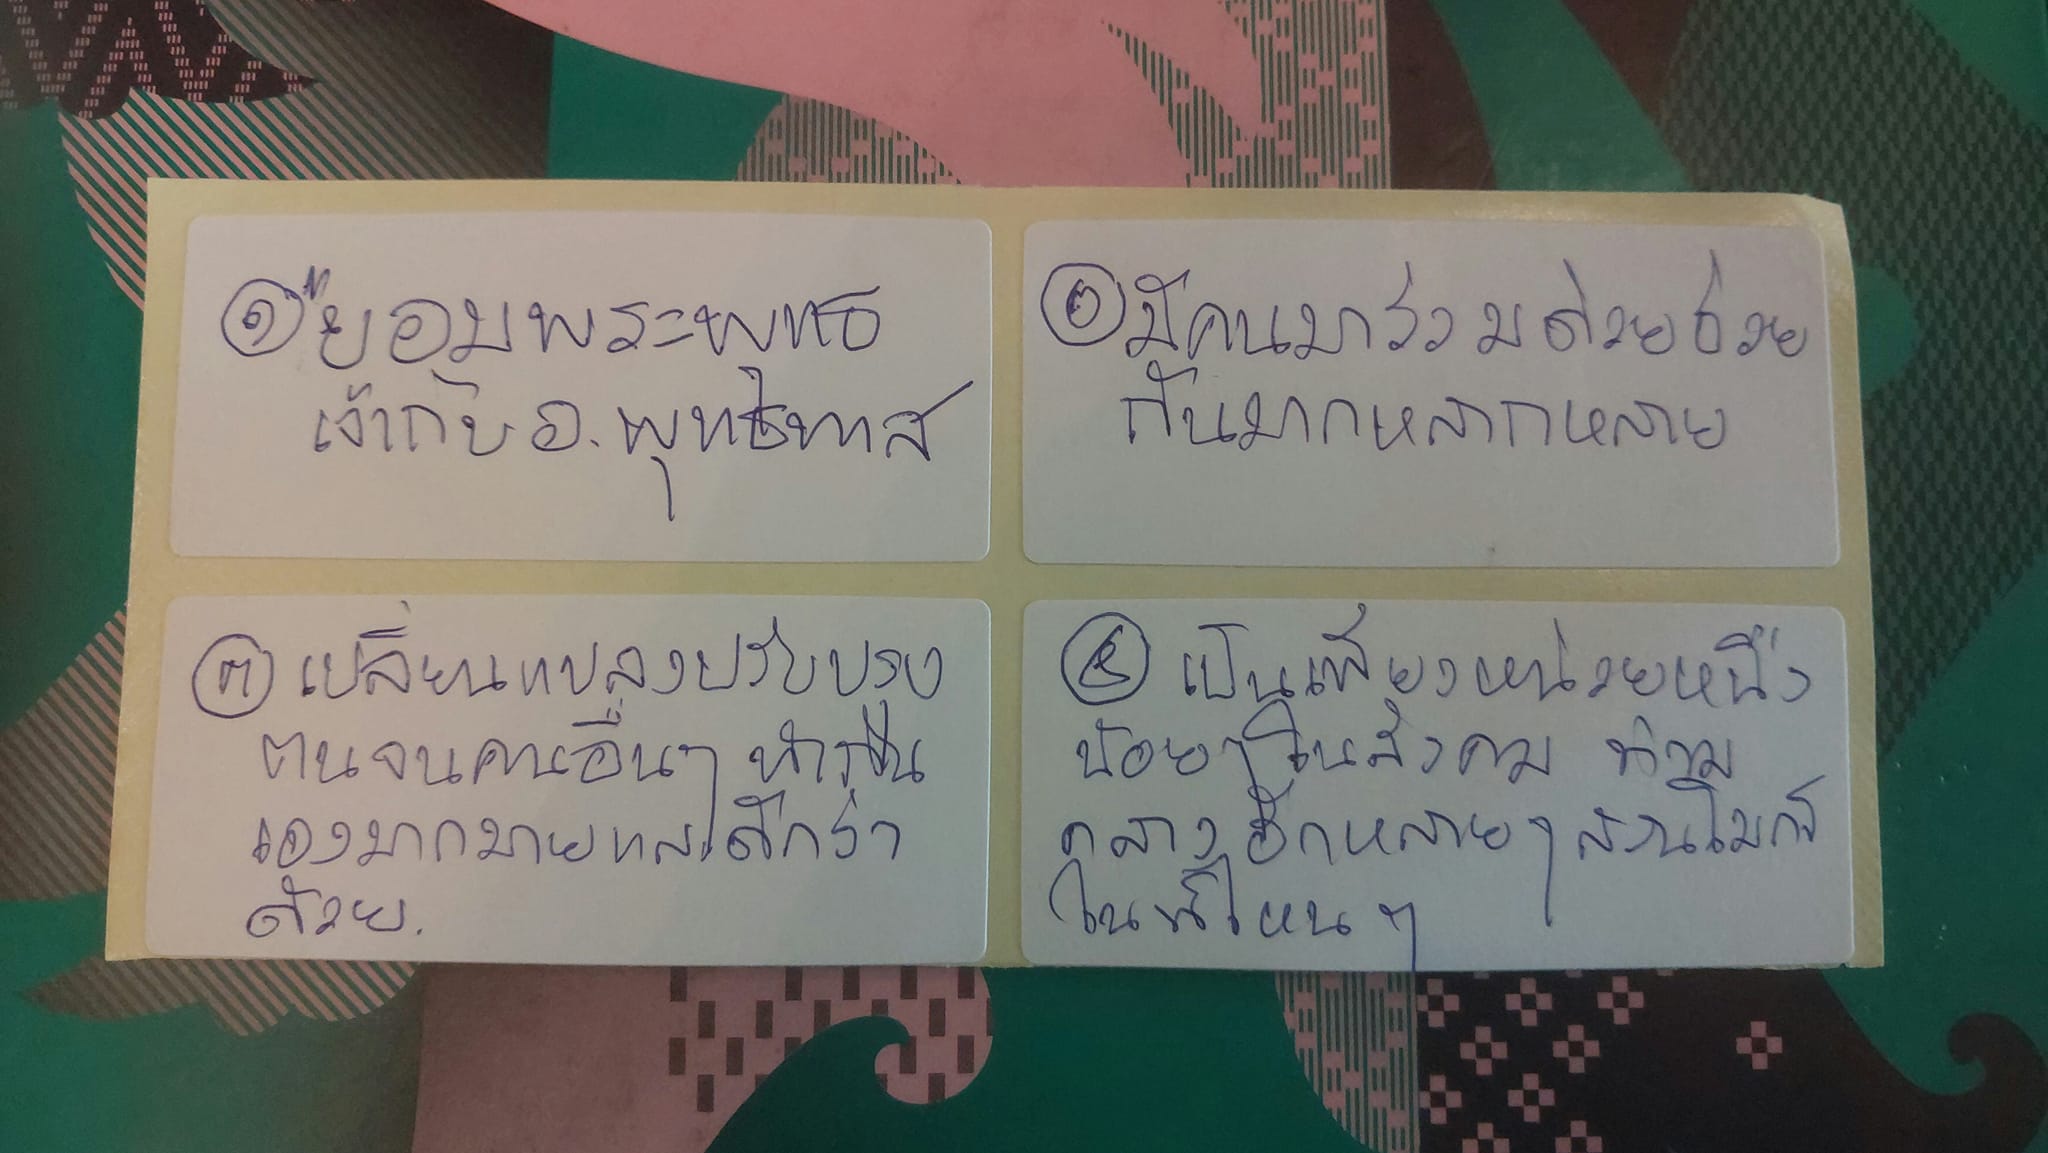 ๑ ยอมพระพุทธ
เจ้ากับ อ.พุทธทาส
๒ มีคนมาร่วมด้วยช่วย
กันมากหลากหลาย
๓ เปลี่ยนแปลงปรับปรุง
ตนจนคนอื่นๆ ทำ
เองมากมายและดีกว่า
ด้วย.
๔ เป็นเพียงหน่วยหนึ่ง
น้อยๆ ในสังคม ท่าม
กลางอีกหลายๆ สวนโมกข์
ในที่ไหนๆ